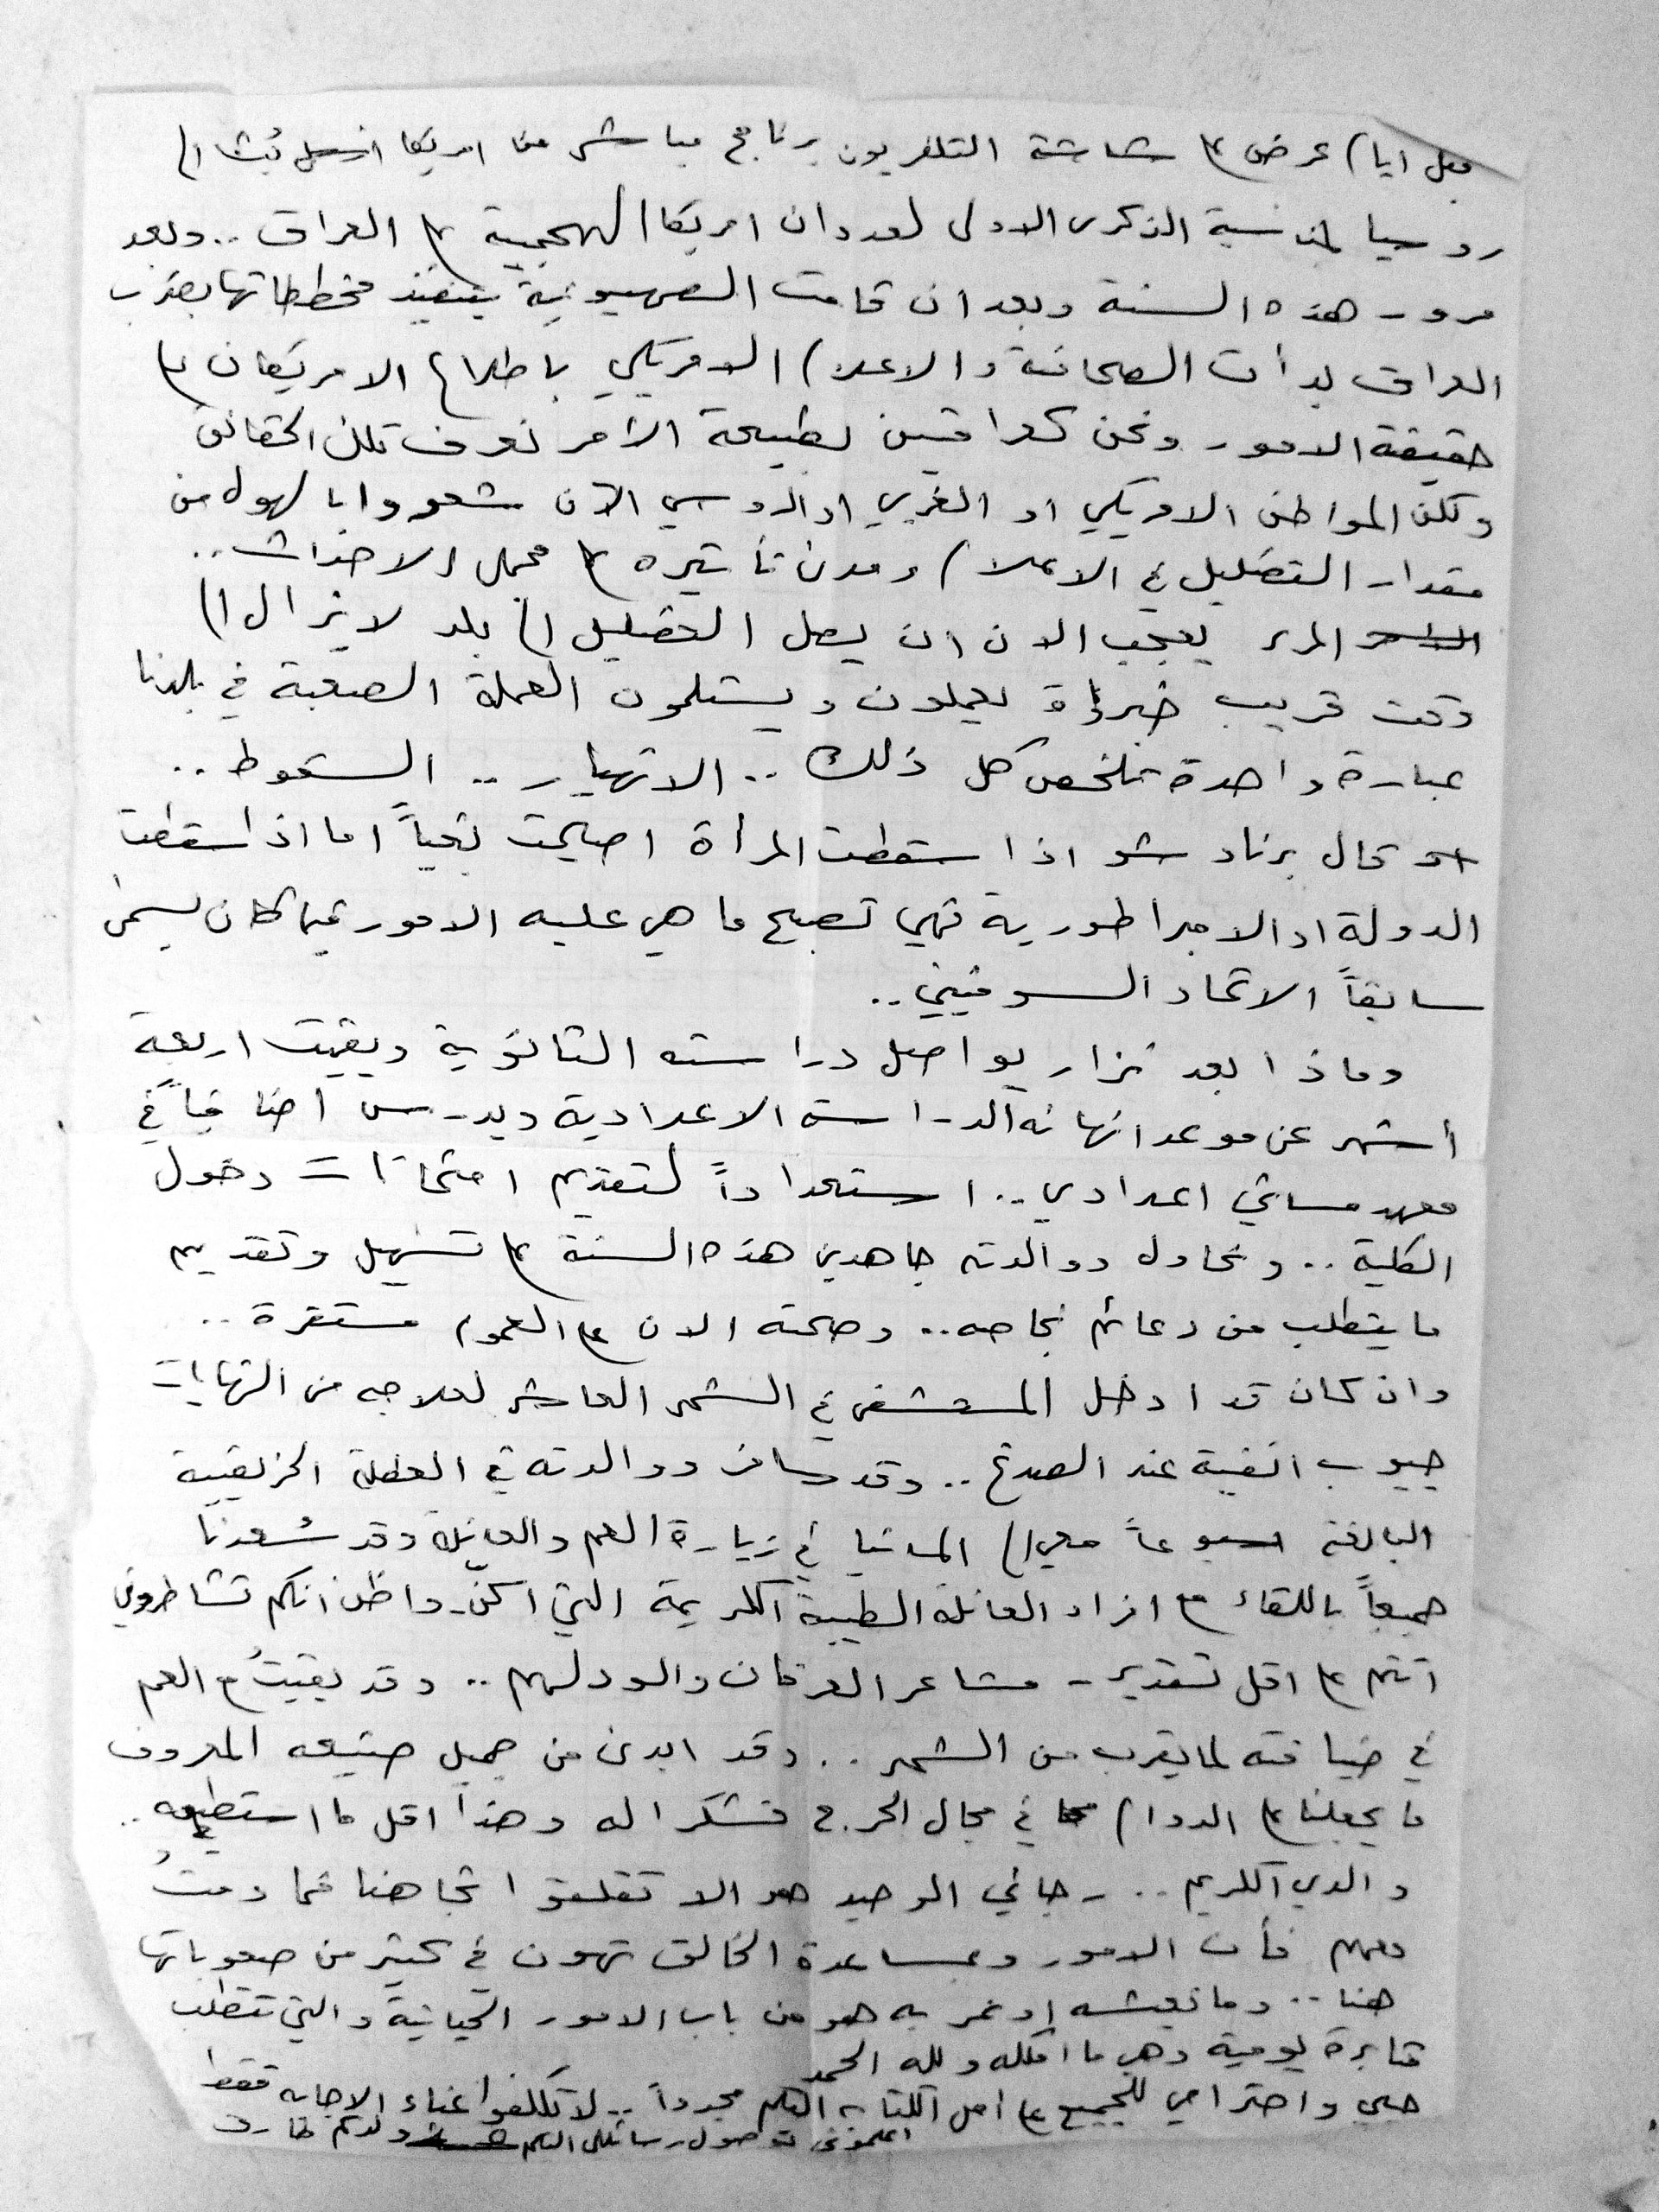 قبل ايام عرض على شاشة التلفزيون برنامج مباشر من امريكا بُث الى
روسيا لمناسبة الذكرى الاولى لعدوان امريكا الهمجية على العراق .. وبعد
مرور هذه السنة وبعد ان قامت الصهيونية بتنفيذ مخططاتها بضرب
العراق بدأت الصحافة والاعلام الامريكي باطلاع الامريكان على
حقيقة الامور ونحن كعراقيين لطبيعة الأمر نعرف تلك الحقائق
ولكن المواطن الامريكي او الغربي او الروسي الآن شعروا بالهول من
مقدار التضليل في الاعلام ومدى تأثيره على مجمل الاحداث ..
المرء يعجب الان ان يصل التضليل الى بلد لا يزال الى
وقت قريب خبراؤه يعملون ويستلمون العملة الصعبة في بلدنا
عبارة واحدة تلخص كل ذلك .. الانهيار .. السقوط ..
قال برناد شو اذا سقطت المرأة اصبحت بغياً اما اذا سقطت
الدولة او الامبراطورية فهي تصبح ما هي عليه الامور فيما كان يسمى
سابقاً الاتحاد السوفييتي ..
وماذا بعد نزار يواصل دراسته الثانوية وبقيت اربعة
أشهر عن موعد انهائه الدراسة الاعدادية ويدرس اضافياً في
معهد مسائي اعدادي .. استعداداً لتقديم امتحانات دخول
الكلية .. ونحاول ووالدته جاهدين هذه السنة على تسهيل وتقديم
ما يتطلب من دعائم نجاحه .. وصحته الان على العموم مستقرة ..
وان كان قد ادخل المستشفى في الشهر العاشر لعلاجه من التهابات
جيوب انفية عند الصدغ .. وقد سافر ووالدته في العطلة الخريفية
البالغة اسبوعاً معي الى المانيا في زيارة العم والعائلة وقد سُعدنا
جميعاً باللقاء مع افراد العائلة الطيبة الكريمة التي اكنّ - واظن انكم تشاطروني
انتم على اقل تقدير - مشاعر العرفان والود لهم .. وقد بقيتُ مع العم
في ضيافته لما يقرب من الشهر .. وقد ابدى من جميل صنيعه المعروف
ما يجعلنا على الدوام في مجال الحرج فشكرا له وهذا اقل ما استطيعه ..
والدي الكريم .. رجائي الوحيد هو الا تقلقوا تجاهنا فما دمتُ
معهم فأن الامور وبمساعدة الخالق تهون في كثير من صعوباتها
هنا .. وما نعيشه او نمر به هو من باب الامور الحياتية والتي تتطلب
مثابرة يومية وهي ما املكه ولله الحمد
حبي واحترامي للجميع على امل الكتابة اليكم مجدداً .. لا تكلفوا عناء الاجابه فقط
اعلموني بوصول رسائلي اليكم ولدكم طارق